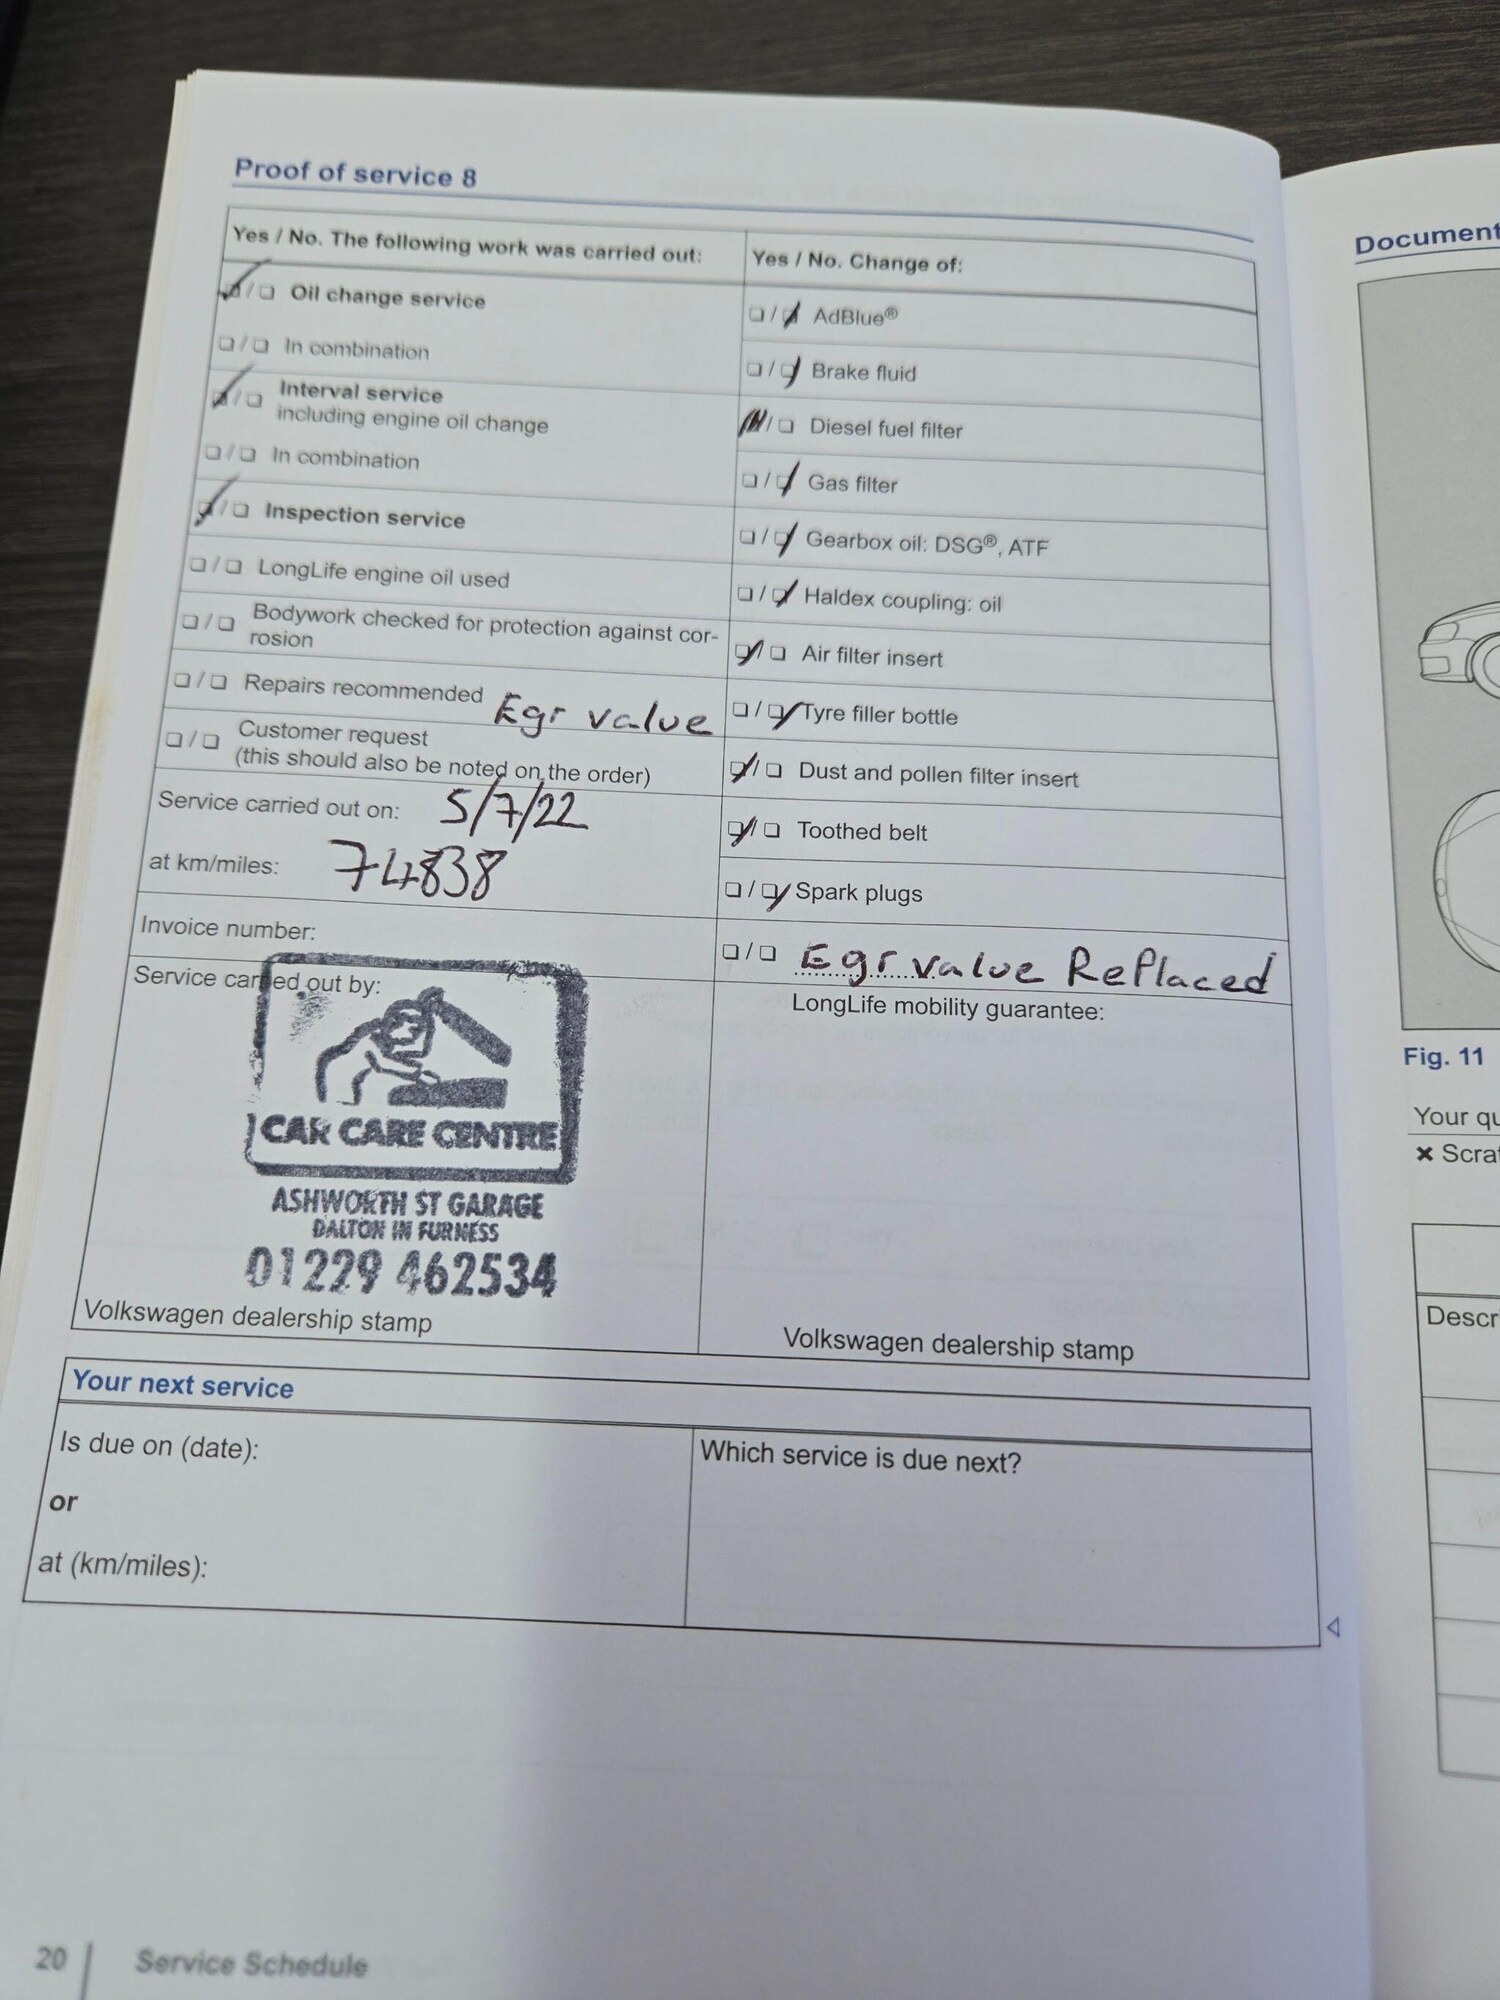 Proof of service 8
Yes / No. The following work was carried out:
Oil change service
In combination
Interval service
including engine oil change
In combination
Inspection service
LongLife engine oil used
Bodywork checked for protection against cor-
rosion
Repairs recommended Egr value
Customer request
(this should also be noted on the order)
Service carried out on: 5/7/22
at km/miles: 74838
Invoice number:
Service carried out by:
CAR CARE CENTRE
ASHWORTH ST GARAGE
DALTON IN FURNESS
01229 462534
Volkswagen dealership stamp
Yes / No. Change of:
AdBlue®
Brake fluid
Diesel fuel filter
Gas filter
Gearbox oil: DSG®, ATF
Haldex coupling: oil
Air filter insert
Tyre filler bottle
Dust and pollen filter insert
Toothed belt
Spark plugs
Egr value Replaced
LongLife mobility guarantee:
Volkswagen dealership stamp
Your next service
Is due on (date):
or
at (km/miles):
Which service is due next?
20 Service Schedule
Document
Fig. 11
Your qu
Scrat
Descr